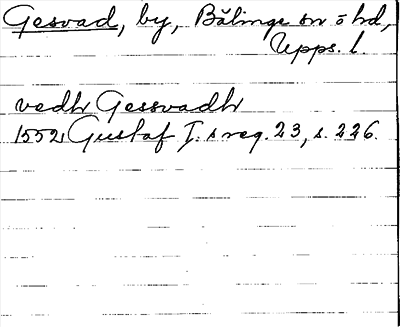 Gesvad, by, Bälinge sn o hd,
Upps. l.
vedh Gessvadh
1552 Gustaf I. s reg. 23, s. 226.